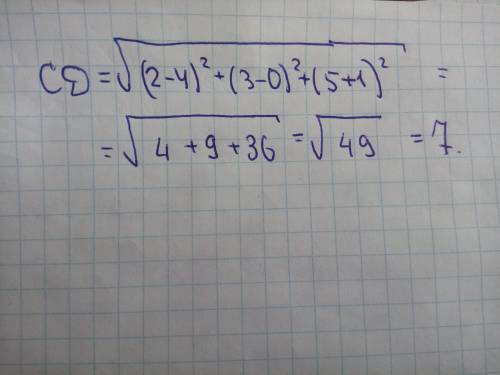 CD = √((2-4)² + (3-0)² + (5+1)²) =
= √(4 + 9 + 36) = √49 = 7.